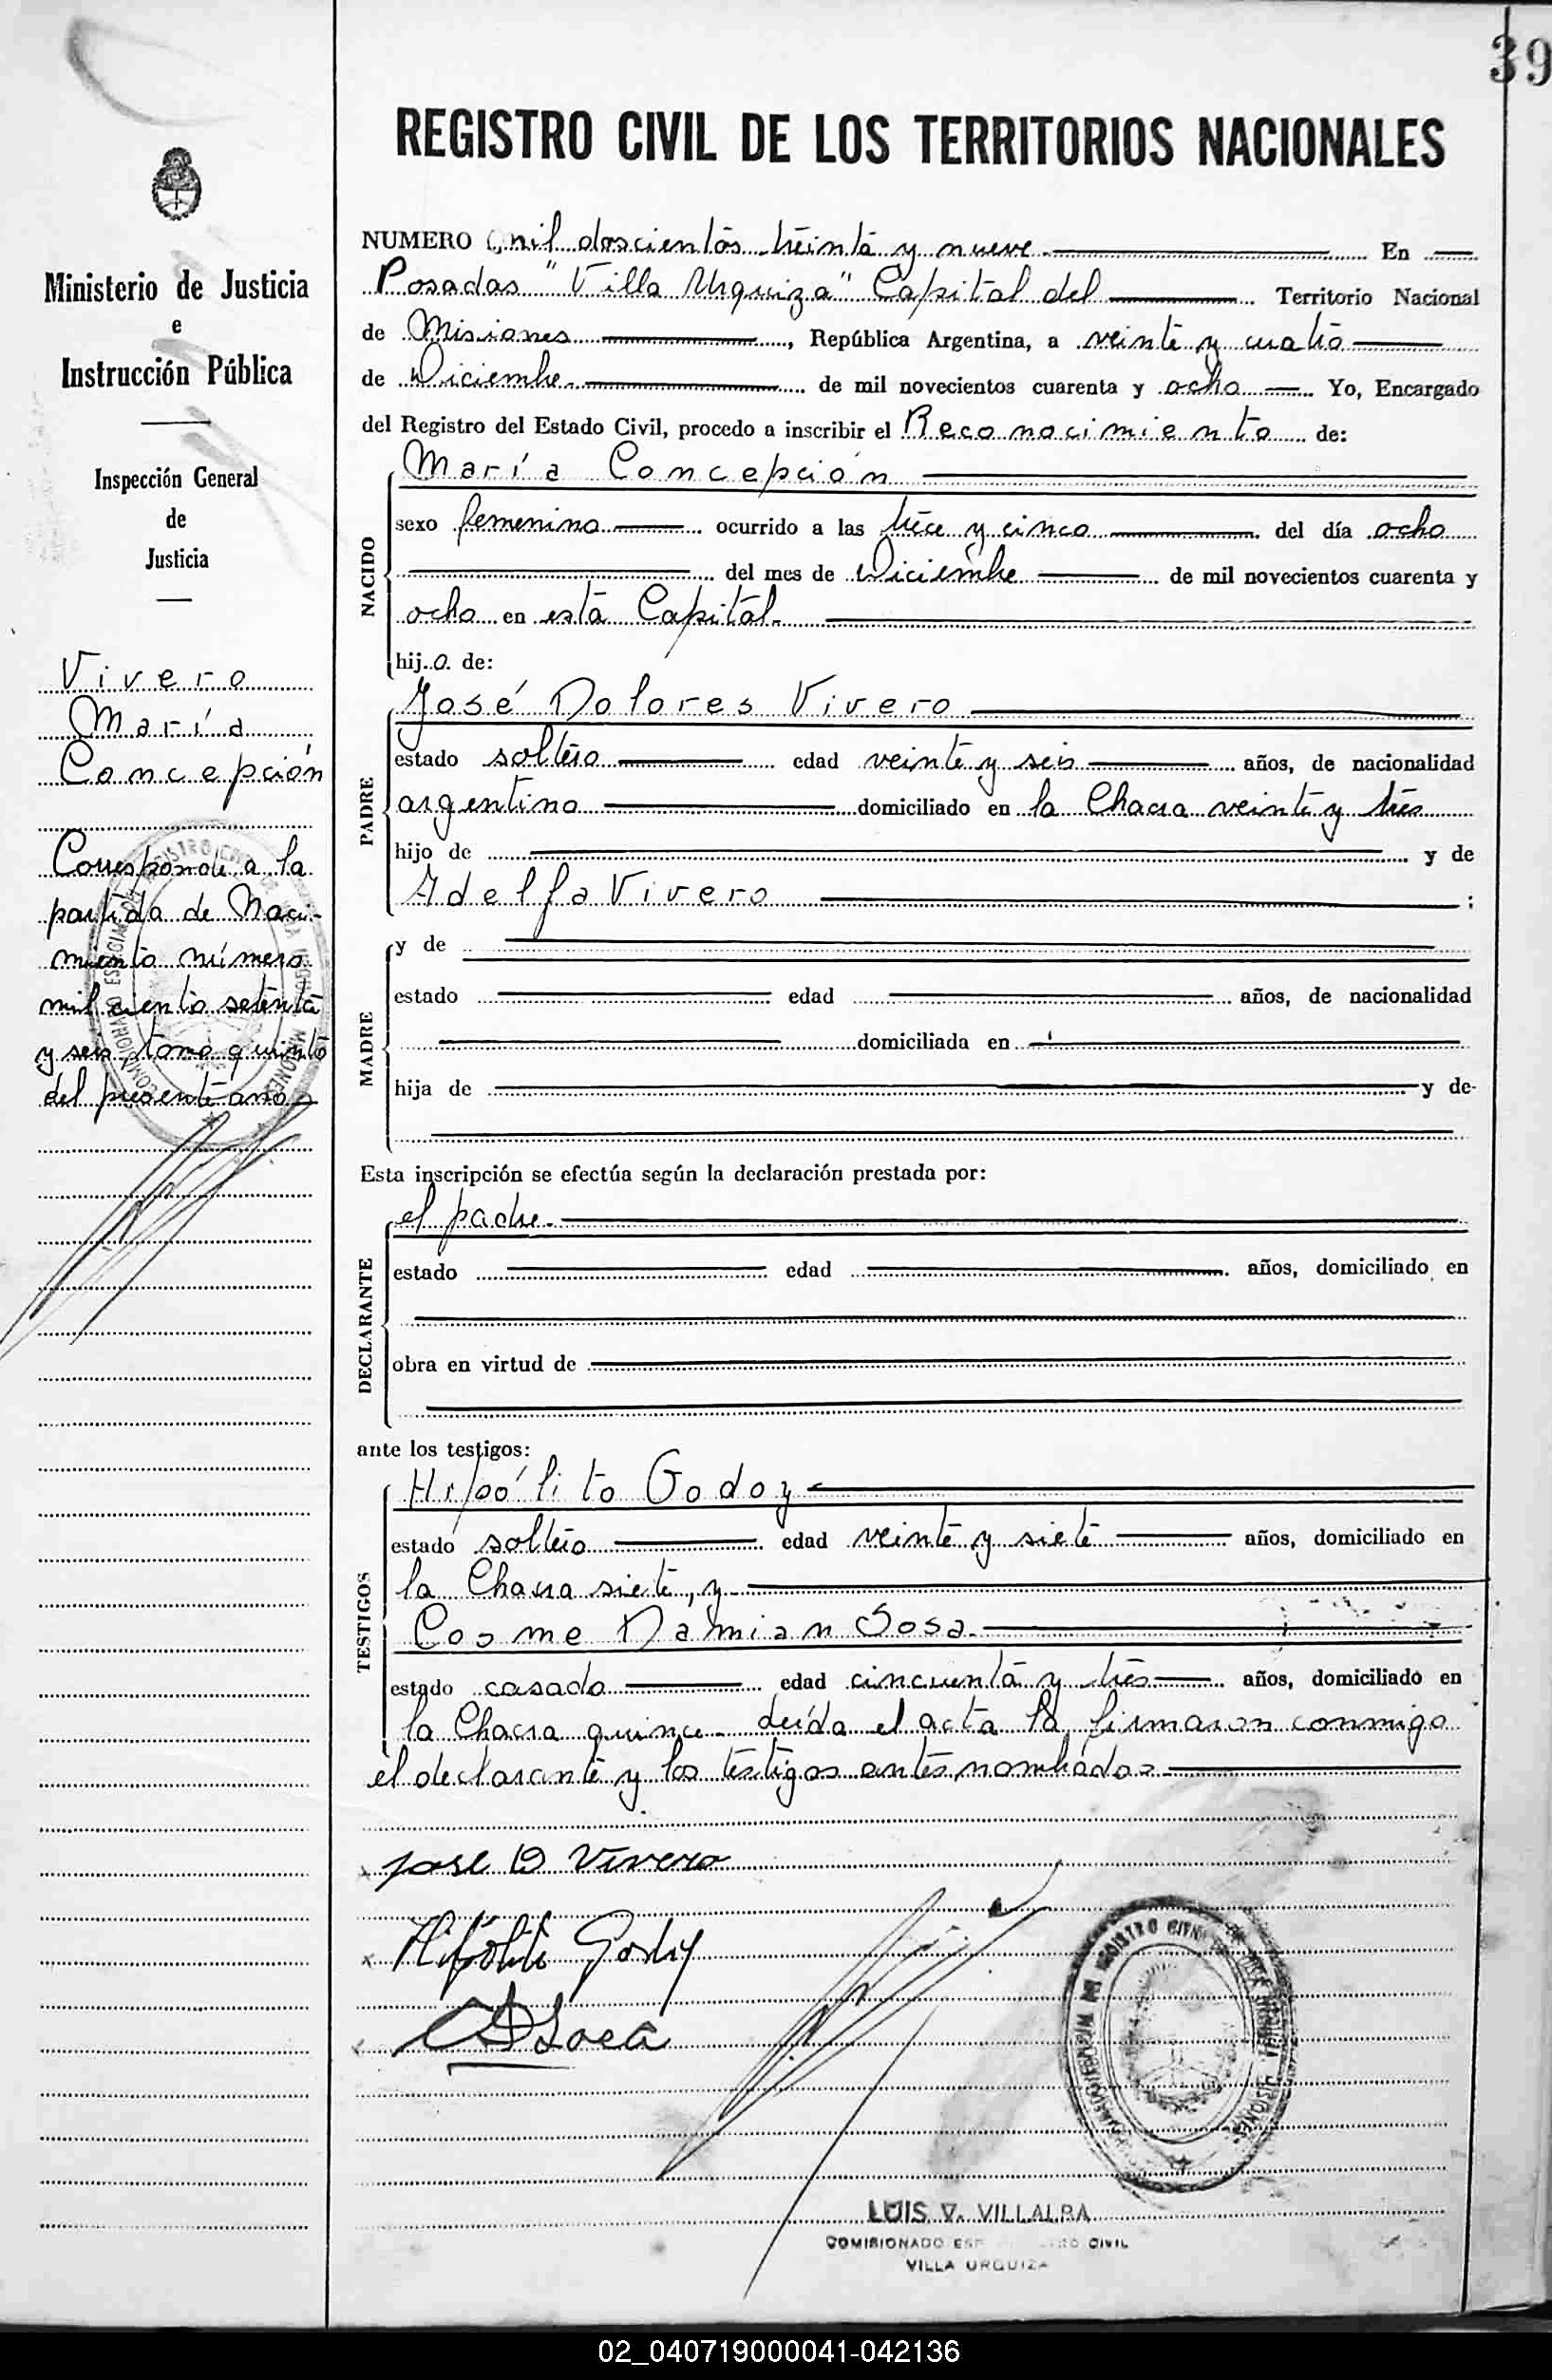 39
REGISTRO CIVIL DE LOS TERRITORIOS NACIONALES
Ministerio de Justicia
e
Instrucción Pública
Inspección General
de
Justicia
Vivero
María
Concepción
Corresponde a la
partida de Naci-
miento número
mil ciento setenta
y seis tomo quinto
del presente año
NUMERO mil doscientos treinta y nueve En
Posadas "Villa Urquiza" Capital del Territorio Nacional
de Misiones, República Argentina, a veinte y cuatro
de Diciembre de mil novecientos cuarenta y ocho Yo, Encargado
del Registro del Estado Civil, procedo a inscribir el Reconocimiento de:
NACIDO
María Concepción
sexo femenino ocurrido a las trece y cinco del día ocho
del mes de Diciembre de mil novecientos cuarenta y
ocho en esta Capital.
hij.a de:
PADRE
José Dolores Vivero
estado soltero edad veinte y seis años, de nacionalidad
argentino domiciliado en la Chacra veinte y tres
hijo de y de
Adelfa Vivero ;
MADRE
y de
estado edad años, de nacionalidad
domiciliada en
hija de y de
Esta inscripción se efectúa según la declaración prestada por:
DECLARANTE
el padre.
estado edad años, domiciliado en
obra en virtud de
ante los testigos:
TESTIGOS
Hipólito Godoy
estado soltero edad veinte y siete años, domiciliado en
la Chacra siete, y
Cosme Damian Sosa.
estado casado edad cincuenta y tres años, domiciliado en
la Chacra quince. Leída el acta la firmaron conmigo
el declarante y los testigos antes nombrados
Jose D Vivero
Hipólito Godoy
CDSosa
LUIS V. VILLALBA
COMISIONADO CIVIL
VILLA URQUIZA
02_040719000041-042136